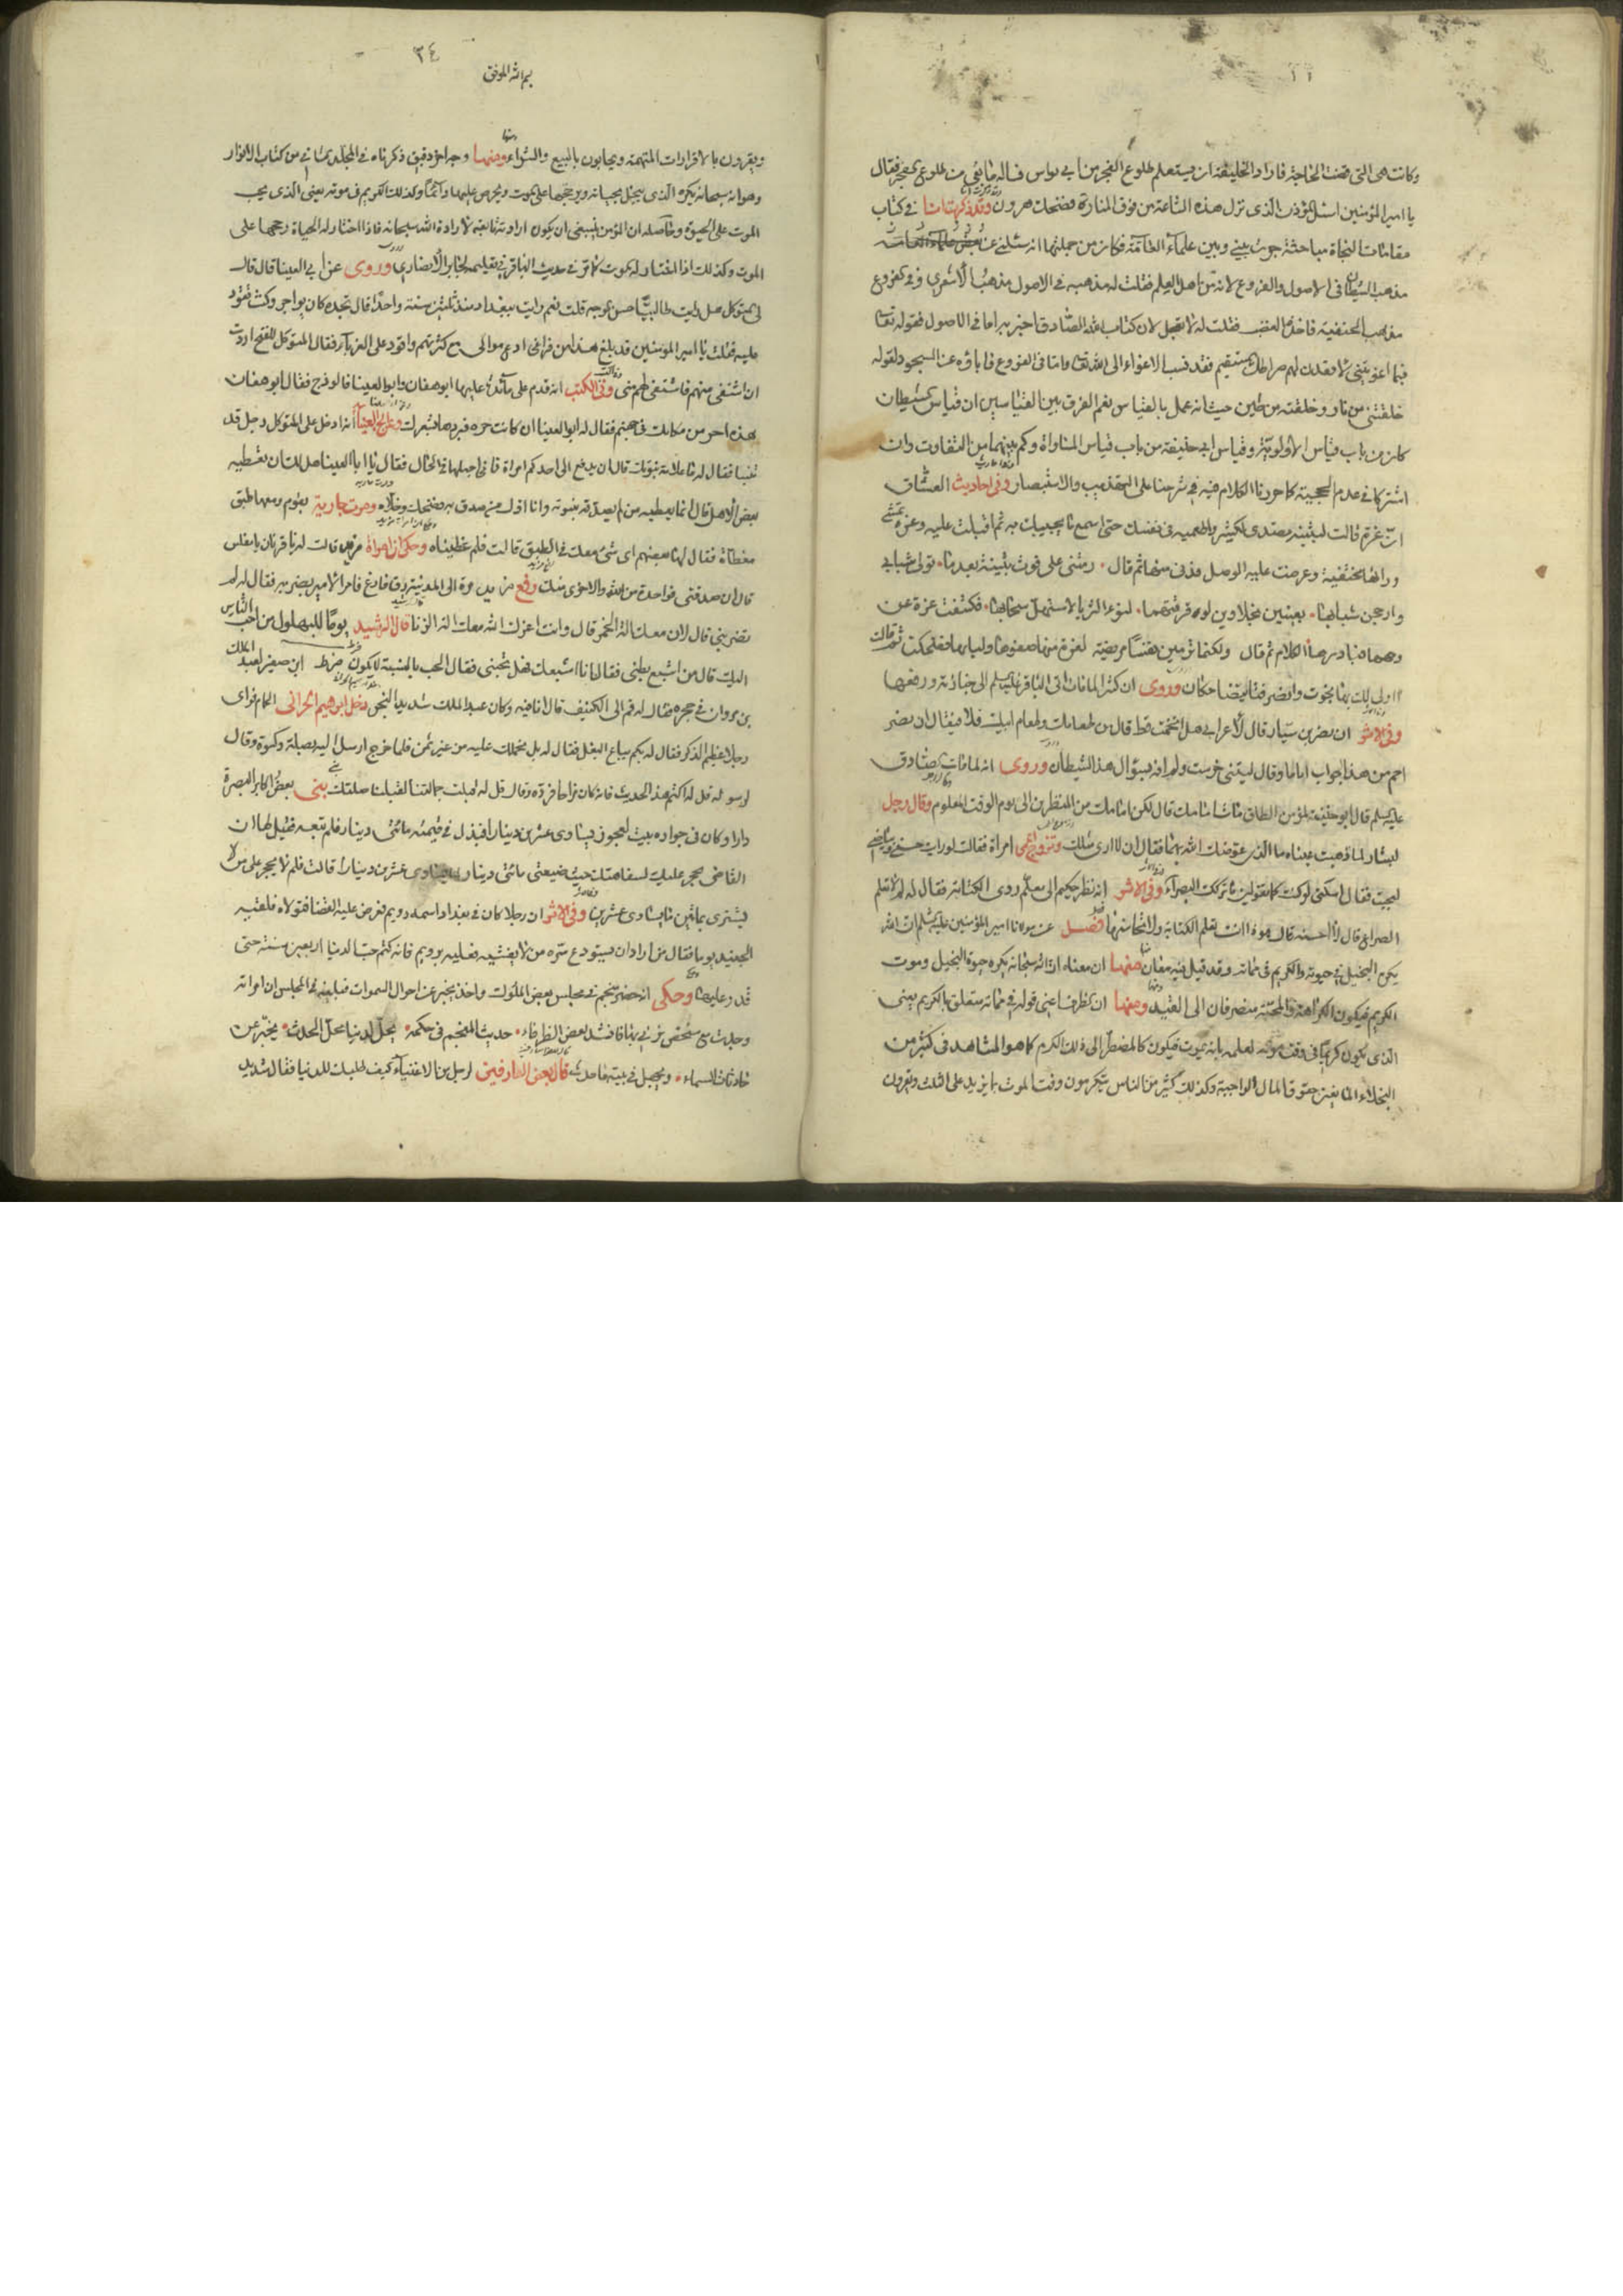 وكانت هى التى قضت الحاجة فاراد الخليفة ان يستعلم طلوع الفجر من ابي نواس فساله ما بقى من طلوع الفجر فقال
يا امير المؤمنين اسئل المؤذن الذى نزل هذه الساعة من فوق المنارة فضحك هرون وقد ذكرت انا فى كتاب
مقامات النجاة مباحثة جرت بيني وبين علماء العامة فكان من جملتها انه سئلنى عن بعض علماء العامة
مذهب الشيطان فى الاصول والفروع لانه من اهل العلم فقلت له مذهبه فى الاصول مذهب الاشعرى وفى الفروع
مذهب الحنفية فاخذه الغضب فقلت له لا تعجل لان كتاب الله الصادق اخبر به اما فى الاصول فقوله تعالى
فبما اغويتنى لاقعدن لهم صراطك المستقيم فقد نسب الاغواء الى الله تعالى واما فى الفروع فاباؤه عن السجود لقوله
خلقتنى من نار وخلقته من طين حيث انه عمل بالقياس نعم الفرق بين القياسين ان قياس الشيطان
كان من باب قياس الاولوية وقياس ابى حنيفة من باب قياس المساواة وكم بينهما من التفاوت وان
اشتركا فى عدم الحجية كما حررنا الكلام فيه فى شرحنا على التهذيب والاستبصار وفى احاديث العشاق
ان عزة قالت لبثينة تصدى لكثير واطمعيه فى نفسك حتى اسمع ما يجيبك به ثم اقبلت عليه وعزة تمشى
ورائها مختفية وعرضت عليه الوصل فدنى منها ثم قال رمتنى على فوت بثينة بعدما تولى شبابى
وارجحن شبابها بعينين نجلاوين لو رقرقتهما لنوء الثريا لاستهل سحابها فكشفت عزة عن
وجهها فبادرها الكلام ثم قال ولكنما ترمين نفسا مريضة لعزة منها صفوها ولبابها فضحكت ثم قالت
اولى لك بها نجوت وانصرفتا يتضاحكان وروى ان كثير لما مات اتى الباقر عليه السلم الى جنازته ورفعها
وفى الاثر ان نصر بن سيار قال لاعرابى هل اتخمت قط قال من طعامك وطعام ابيك فلا فيقال ان نصر
احم من هذا الجواب اياما وقال ليتنى خرست ولم افه بسؤال هذا الشيطان وروى انه لما مات الصادق
عليه السلم قال ابو حنيفة لمؤمن الطاق مات امامك قال لكن امامك من المنظرين الى يوم الوقت المعلوم وقال رجل
لبشار لما ذهبت عيناه ما الذى عوضك الله بهما فقال ان لا ارى مثلك وتزوج اعمى امراة فقالت لو رايت حسنى وبياضى
لعجبت فقال اسكتى لو كنت كما تقولين ما تركك البصراء وفى الاثر انه نظر حكيم الى معلم ردى الكتابة فقال له لم لا تعلم
الصراع قال لا احسنه قال هوذا انت تعلم الكتابة ولا تحسنها فصل عن مولانا امير المؤمنين عليه السلم ان الله
يكره البخيل فى حيوته والكريم فى مماته وقد قيل فيه معان منها ان معناه ان الله سبحانه يكره حيوة البخيل وموت
الكريم فيكون الكراهة والمحبة منصرفان الى القيد ومنها ان الظرف اعنى قوله فى مماته متعلق بالكريم يعنى
الذى يكون كريما فى وقت موته لعلمه بانه يموت فيكون كالمضطر الى ذلك الكرم كما هو المشاهد فى كثير من
البخلاء المانعين حقوق المال الواجبة وكذلك كثير من الناس يتكرمون وقت الموت بما يزيد على الثلث ويقرون
٣٤
بسم الله الموفق
ويقرون بالاقرارات المتهمة ويحابون بالبيع والشراء ومنها وجه اخر دقيق ذكرناه فى المجلد الثانى من كتاب الانوار
وهو انه سبحانه يكره الذى يبخل بحياته ويرجحها على الموت ويحرص عليها دائما وكذلك الكريم فى موته يعنى الذى يحب
الموت على الحيوة وحاصله ان المؤمن ينبغى ان يكون ارادته تابعة لارادة الله سبحانه فاذا اختار له الحياة رجحها على
الموت وكذلك اذا اختار له الموت كما مر فى حديث الباقر فى تعليمه لجابر الانصارى وروى عن ابى العينا قال قال
لى المتوكل هل رايت طالبيا حسن الوجه قلت نعم رايت ببغداد منذ ثلثين سنة واحدا قال تجده كان يواجر وكنت تقود
عليه فقلت يا امير المؤمنين قد بلغ هذا من فراغى ادع موالى مع كثرتهم واقود على الغرباء فقال المتوكل للفتح اردت
ان اشتفى منهم فاشتفى لهم منى وفى الكتب انه قدم على مائدة عليها ابو هفان وابو العينا فالوذج فقال ابو هفان
هذه احر من مكانك فى جهنم فقال له ابو العينا ان كانت حرة فبردها بشعرك وعن ابى العيناء انه ادخل على المتوكل رجل قد
تنبا فقال له ما علامة نبوتك قال ان يدفع الى احدكم امراة فانى احبلها فى الحال فقال يا ابا العينا هل لك ان تعطيه
بعض الاهل قال انما يعطيه من لم يصدق بنبوته وانا اول من صدق به فضحك وخلاه ومرت جارية بقوم ومعها طبق
مغطاة فقال لها بعضهم اى شىء معك فى الطبق قالت فلم غطيناه وحكى ان امراة مزبد قالت له يا قرنان يا مفلس
قال ان صدقتى فواحدة من الله والاخرى منك ورفع مزبد مرة الى المدينة زق فارغ فامر الامير بضربه فقال له لم
تضربنى قال لان معك آلة الخمر قال وانت اعزك الله معك الة الزنا قال الرشيد يوما للبهلول من احب الناس
اليك قال من اشبع بطنى فقال انا اشبعك فهل تحبنى فقال الحب بالنسية لا يكون ضرط ابن صغير لعبد الملك
بن مروان فى حجره فقال له قم الى الكنيف قال انا فيه وكان عبد الملك شديد البخر دخل ابرهيم الحرانى الحمام فراى
رجلا عظيم الذكر فقال له بكم يباع البغل فقال له بل نحملك عليه من غير ثمن فلما خرج ارسل اليه بصلة وكسوة وقال
لرسوله قل له اكتم هذا الحديث فانه كان مزاحا فرده وقال قل له لو قبلت حملاتنا لقبلنا صلتك بنى بعض اكابر البصرة
دارا وكان فى جواره بيت لعجوز يساوى عشرين دينارا فبذل فى قيمته مائتى دينار فلم تبعه فقيل لها ان
القاضى يحجر عليك لسفاهتك حيث ضيعتى مائتى دينار لما يساوى عشرين دينارا قالت فلم لا يحجر على من
يشترى بمائتين ما يساوى عشرين وفى الاثر ان رجلا كان فى بغداد اسمه رويم فعرض عليه القضا فتولاه فلقيه
الجنيد يوما فقال من اراد ان يستودع سره من لا يفشيه فعليه برويم فانه كتم حب الدنيا اربعين سنة حتى
قدر عليها وحكى انه حضر منجم فى مجلس بعض الملوك واخذ يخبر عن احوال السموات فبلغه فى المجلس ان امراته
وجدت مع شخص يزنى بها فانشد بعض الظرفاء حديث المنجم فى حكمه يحل لدينا محل الحدث يخبر عن
حادثات السماء ويجهل فى بيته ما حدث قال بعض العارفين لرجل من الاغنياء كيف طلبك للدنيا فقال شديد